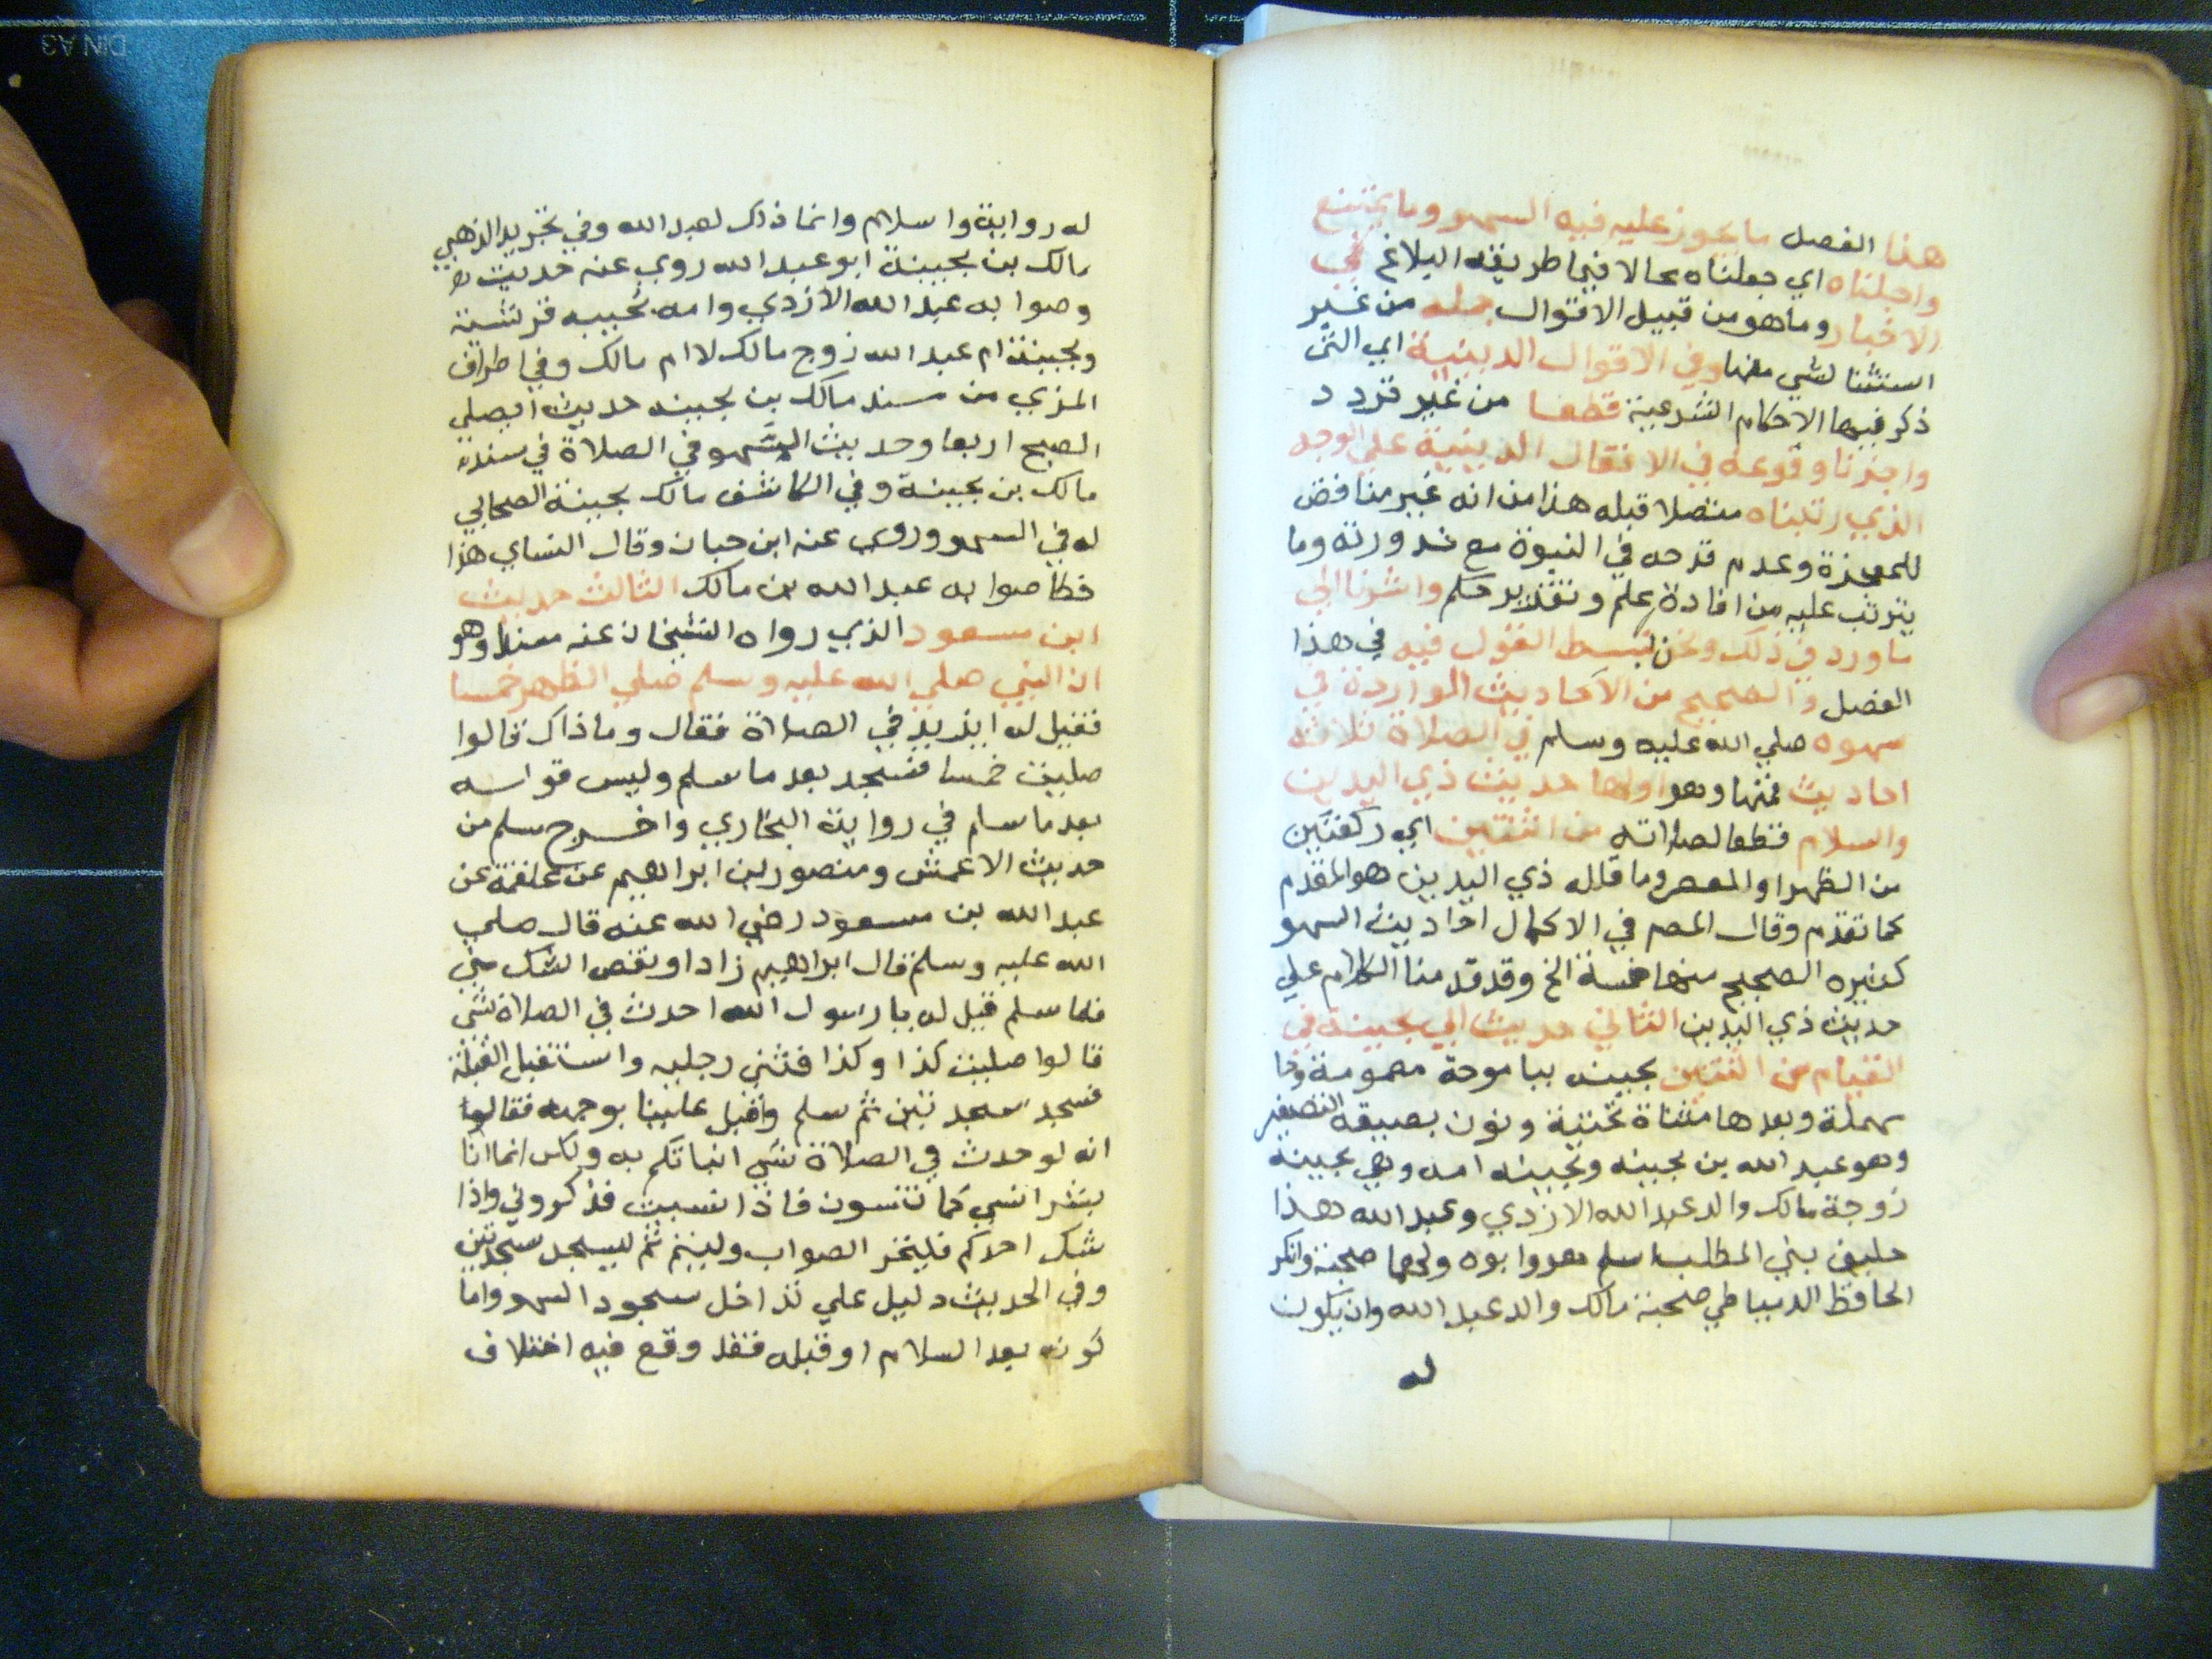 هذا الفصل ما يجوز عليه فيه السهو وما يمتنع
واحلناه اي جعلناه محالا فيما طريقه البلاغ في
الاخبار وما هو من قبيل الاقوال جمله من غير
استثنا لشي منها وفي الاقوال الدينية اي التى
ذكر فيها الاحكام الشرعية قطعا من غير تردد
واجزنا وقوعه في الافعال الدينية علي الوجه
الذي رتبناه متصلا قبله هذا من انه غير مناقض
للمعجزة وعدم قدحه في النبوة مع ندورته وما
يترتب عليه من افادة علم وتقدير حكم واشرنا الي
ما ورد في ذلك ونحن نبسط القول فيه في هذا
الفصل والصحيح من الاحاديث الواردة في
سهوه صلي الله عليه وسلم في الصلاة ثلاثة
احاديث فمنها وهو اولها حديث ذي اليدين
والسلام قطعا لصلاته من اثنتين اي ركعتين
من الظهر او العصر وما قاله ذي اليدين هو المقدم
كما تقدم وقال المصـ في الاكمال احاديث السهو
كثيره الصحيح منها خمسة الخ وقد قدمنا الكلام علي
حديث ذي اليدين الثاني حديث ابي بحينة في
القيام من اثنتين بحينه بباموحة مضمومة وحا
مهملة وبعدها مثناة تحتية ونون بصيغه التصغير
وهو عبد الله بن بحينه وبحينه امه وهي بحينة
زوجة مالك والد عبد الله الازدي وعبد الله هذا
حليف بني المطلب اسلم هو وابوه ولهما صحبة وانكر
الحافظ الدمياطي صحبة مالك والد عبد الله وان يكون
له
له رواية واسلام وانما ذاك لعبد الله وفي تجريد الذهبي
مالك بن بحينة ابو عبد الله روي عنه حديث
وصوابه عبد الله الازدي وامه بحينه قرشية
وبحينة ام عبد الله زوج مالك لا ام مالك وفي اطراف
المزي من مسند مالك بن بحينه حديث ايصلي
الصبح اربعا وحديث السهو في الصلاة في سنده
مالك بن بحينة وفي الكاشف مالك بحينة الصحابي
له في السهو وروي عنه ابن حبان وقال النساي هذا
خطا صوابه عبد الله بن مالك الثالث حديث
ابن مسعود الذي رواه الشيخان عنه مسندا وهو
ان النبي صلي الله عليه وسلم صلي الظهر خمسا
فقيل له ايزيد في الصلاة فقال وما ذاك قالوا
صليت خمسا فسجد بعد ما سلم وليس قوله
بعد ما سلم في رواية البخاري واخرج مسلم من
حديث الاعمش ومنصور بن ابراهيم عن علقمة عن
عبد الله بن مسعود رضي الله عنه قال صلي
الله عليه وسلم قال ابراهيم زاد او نقص الشك مني
فلما سلم قيل له يا رسول الله احدث في الصلاة شي
قالوا صليت كذا وكذا فثني رجليه واستقبل القبلة
فسجد سجدتين ثم سلم واقبل علينا بوجهه فقالوا
انه لو حدث في الصلاة شي انباتكم به ولكن انما انا
بشر انسي كما تنسون فاذا نسيت فذكروني واذا
شك احدكم فليتحر الصواب وليتم ثم ليسجد سجدتين
وفي الحديث دليل علي تداخل سجود السهو واما
كونه بعد السلام او قبله فقد وقع فيه اختلاف